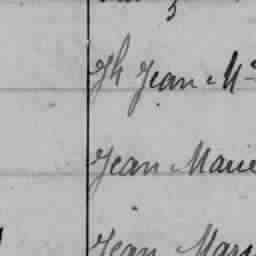 Jh Jean M
Jean Marie
Jean Mari